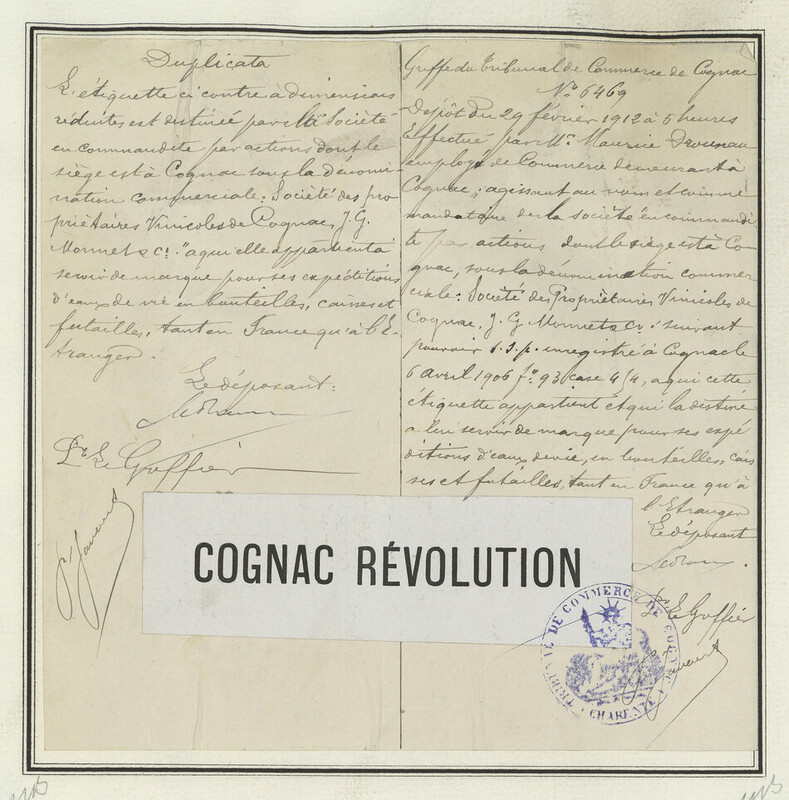 Duplicata
L'étiquette ci contre à dimensions
réduites est destinée par la Société
en commandite par actions dont le
siège est à Cognac sous la dénomi
nation commerciale: Société des pro
priétaires Vinicoles de Cognac, J. G.
Monnet & Cie. "a qui elle appartient à
servir de marque pour ses expéditions
d'eaux de vie en bouteilles, caisses et
futailles, tant en France qu'à l'E-
tranger.
Le déposant:
Le Greffier
Greffe du Tribunal de Commerce de Cognac
No 6469
Dépôt du 29 février 1912 à 5 heures
Effectué par Mr. Maurice
employé de Commerce demeurant à
Cognac; agissant au nom et comme
mandataire de la société en commandi
te par actions dont le siège est à Co
gnac, sous la dénomination commer
ciale: Société des Propriétaires Vinicoles de
Cognac, J. G. Monnet & Co: suivant
pouvoir s.s.p. enregistré à Cognac le
6 Avril 1906 fo. 93 case 4, a qui cette
étiquette appartient et qui la destine
a lui servir de marque pour ses expé
ditions d'eaux de vie, en bouteilles, cais
ses et futailles, tant en France qu'à
l'Etranger
Le déposant
Le Greffier
COGNAC RÉVOLUTION
TRIBUNAL DE COMMERCE DE COGNAC
CHARENTE